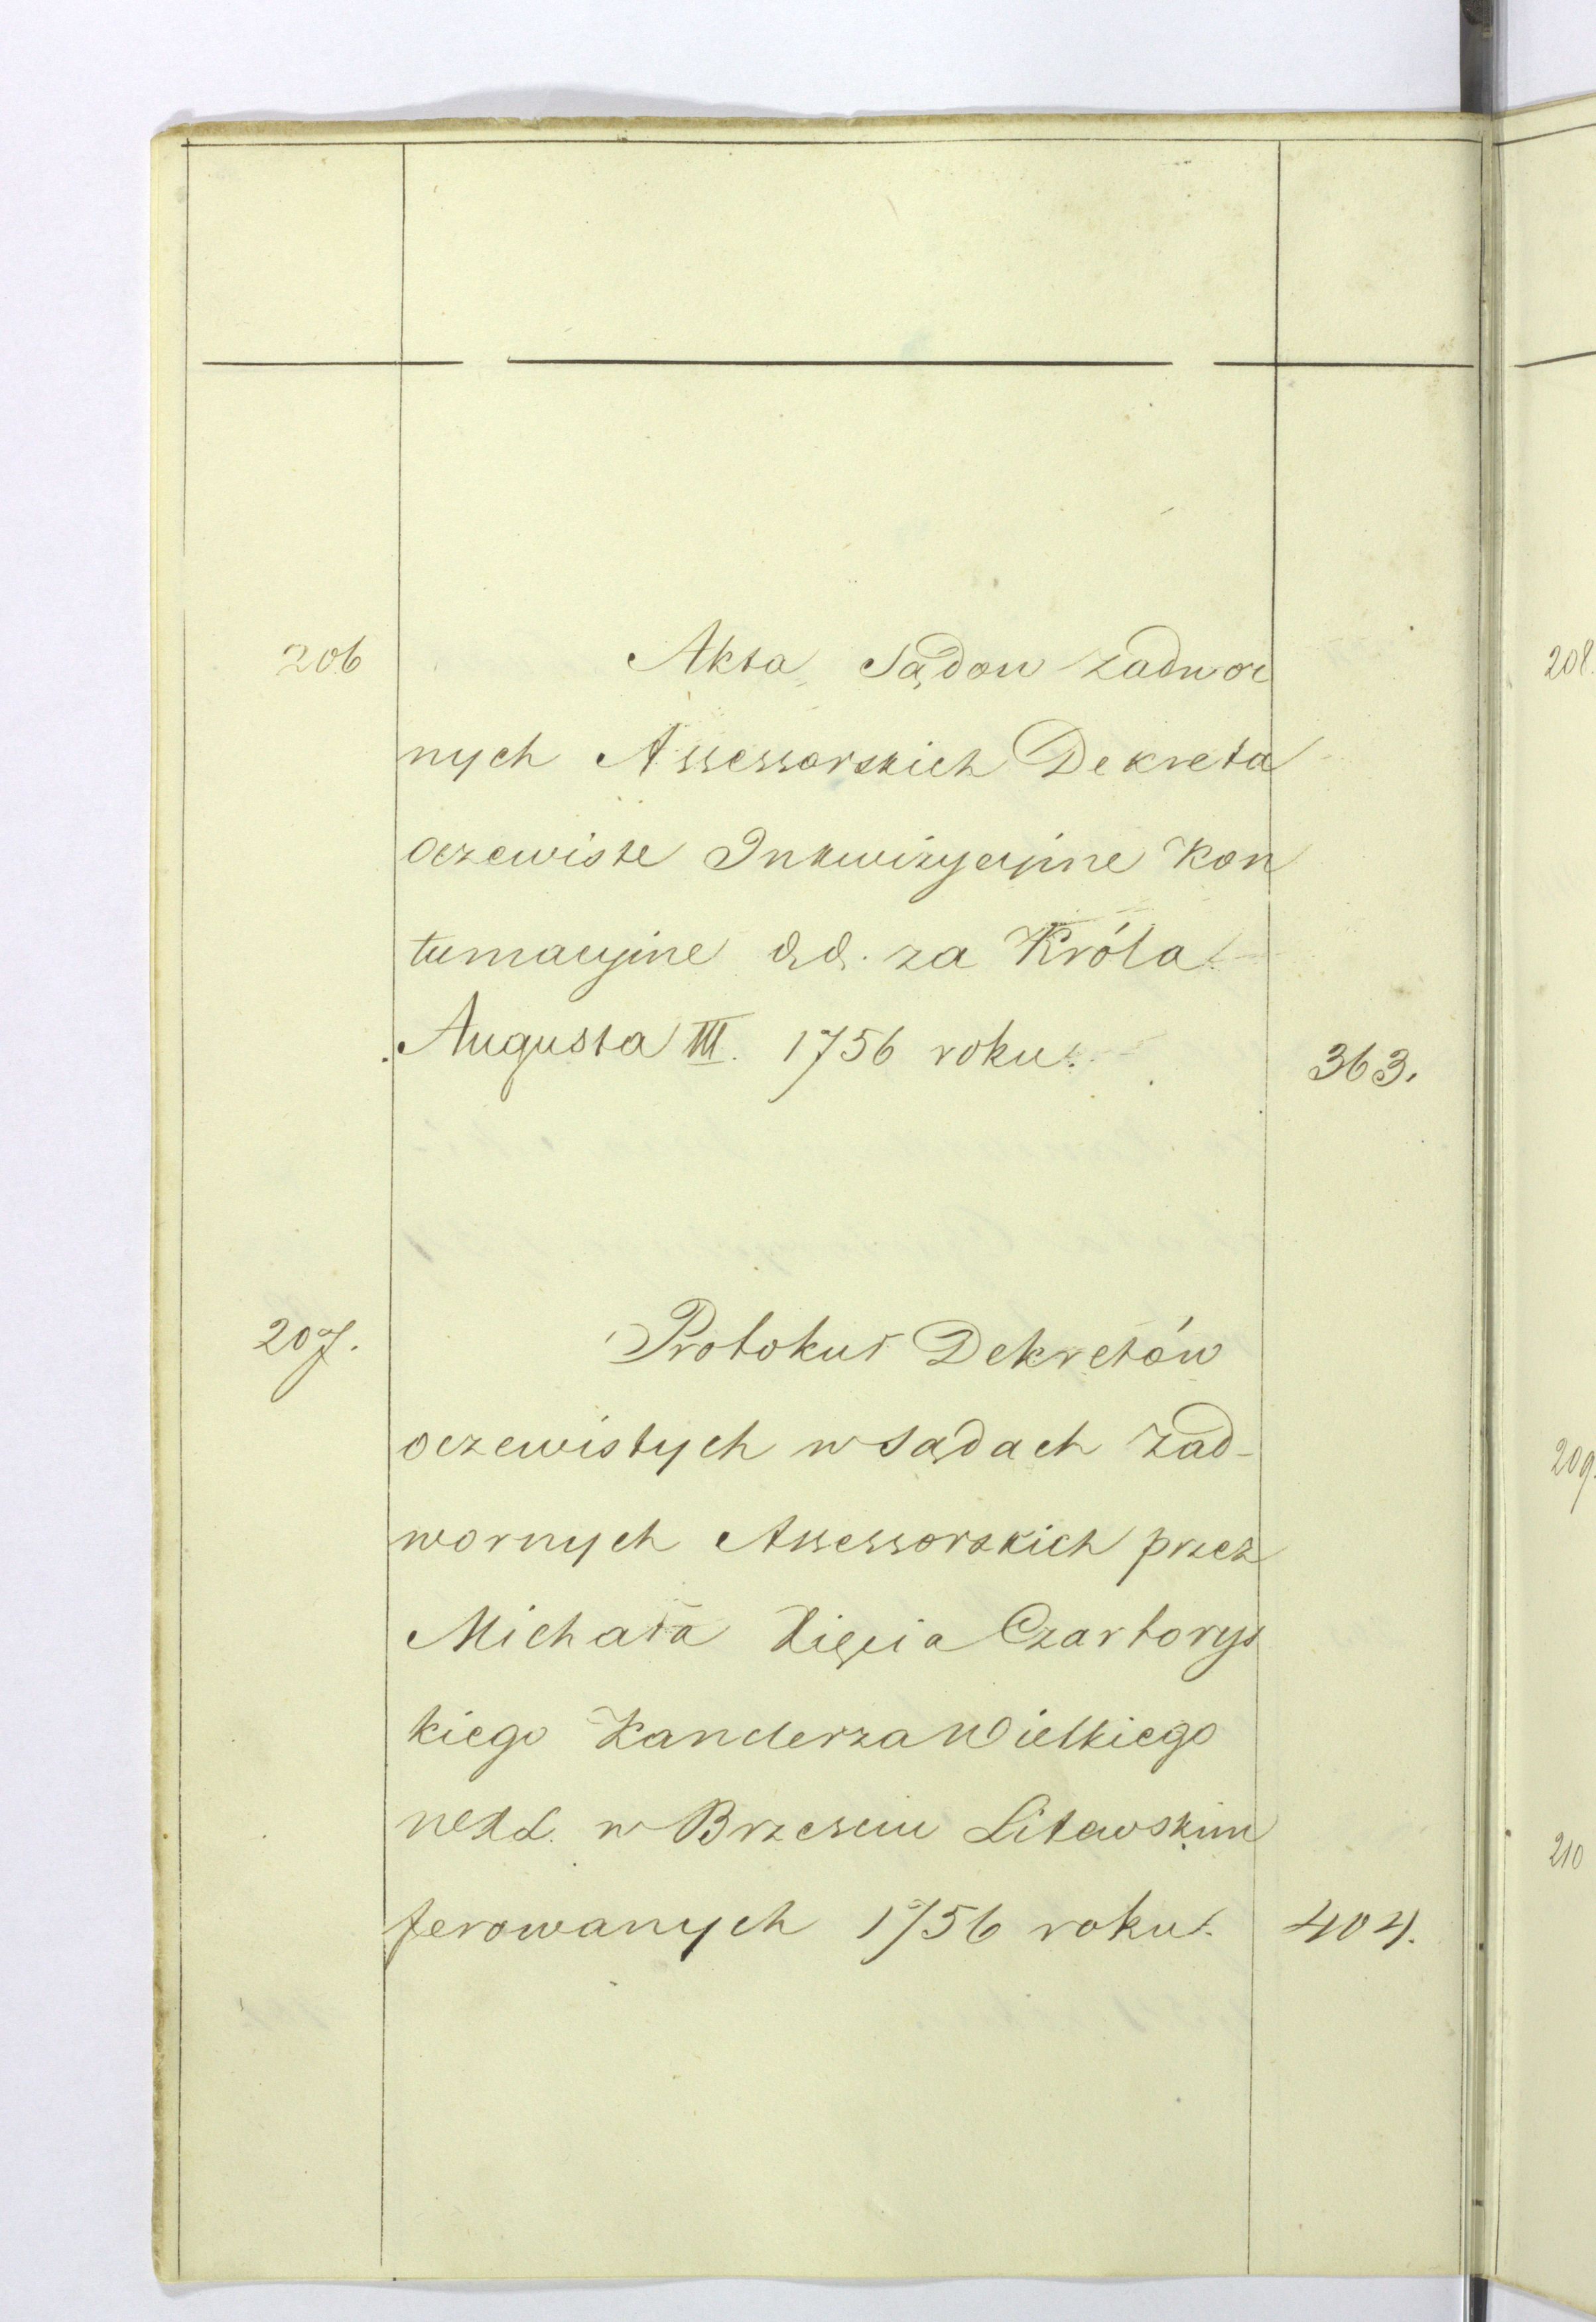 206 Akta Sądow Zadwor
nych Assessorskich Dekreta
oczewiste Inkwizycyine Kon
tumacyine &. &. za Króla
Augusta III. 1756 roku. 363.
207. Protokuł Dekretów
oczewistych w Sądach Zad-
wornych Assessorskich przez
Michała Xięcia Czartorys
kiego Kanclerza Wielkiego
w Brzesciu Litewskim
ferowanych 1756 roku. 404.
208.
209.
210